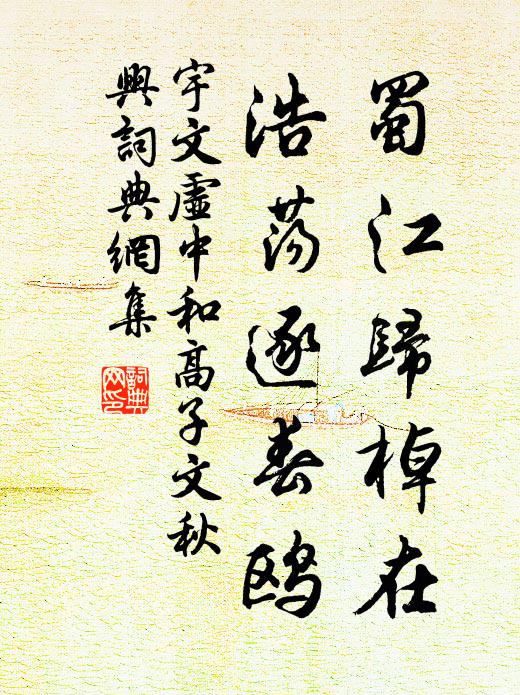 蜀江歸棹在
浩荡逐春鸥
宇文虛中和高子文秋
興詞典網集
詞典
网印